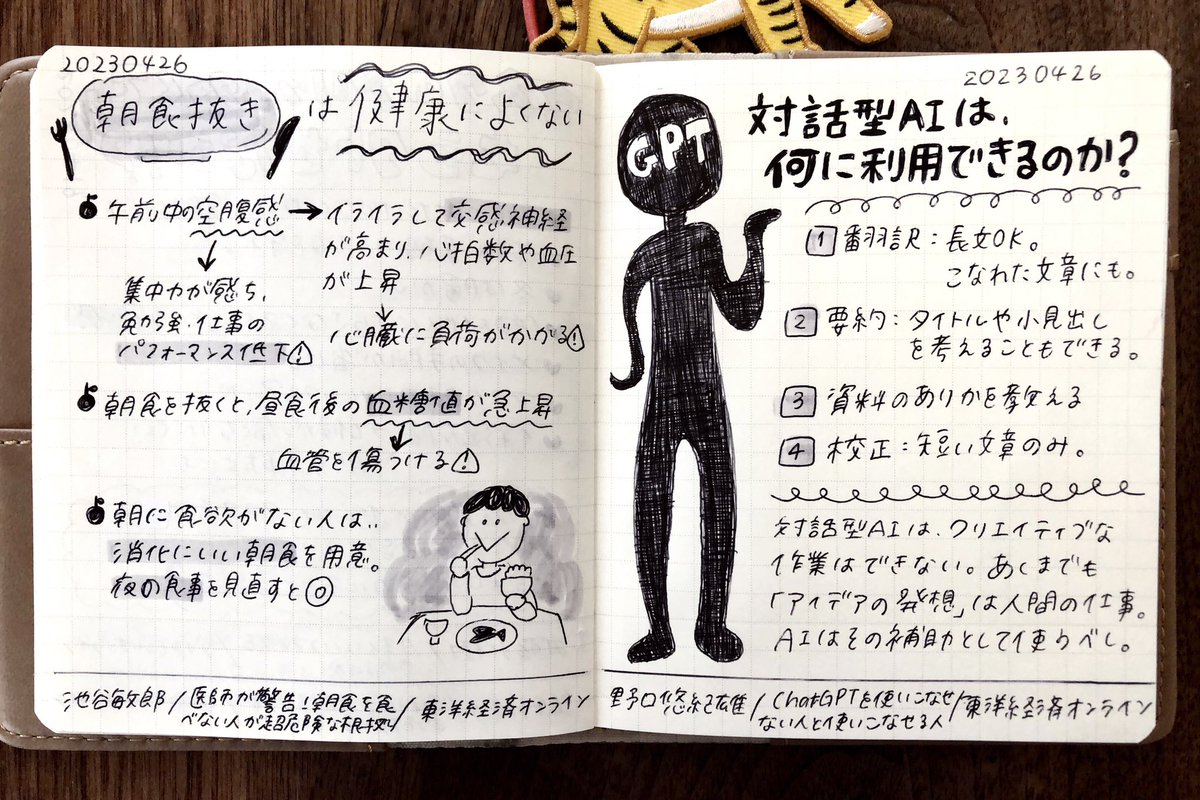 20230426
朝食抜きは健康によくない
午前中の空腹感→イライラして交感神経
が高まり、心拍数や血圧
が上昇
↓
心臓に負荷がかかる!
↓
集中力が感ち、
勉強・仕事の
パフォーマンス低下!
朝食を抜くと、昼食後の血糖値が急上昇
↓
血管を傷つける!
朝に食欲がない人は、
消化にいい朝食を用意。
夜の食事を見直すと◎
池谷敏郎/医師が警告!朝食を食
べない人が超危険な根拠/東洋経済オンライン
20230426
GPT
対話型AIは、
何に利用できるのか?
1 翻訳:長文OK。
こなれた文章にも。
2 要約:タイトルや小見出し
を考えることもできる。
3 資料のありかを教える
4 校正:短い文章のみ。
対話型AIは、クリエイティブな
作業はできない。あくまでも
「アイデアの発想」は人間の仕事。
AIはその補助として使うべし。
野口悠紀雄/ChatGPTを使いこなせ
ない人と使いこなせる人/東洋経済オンライン